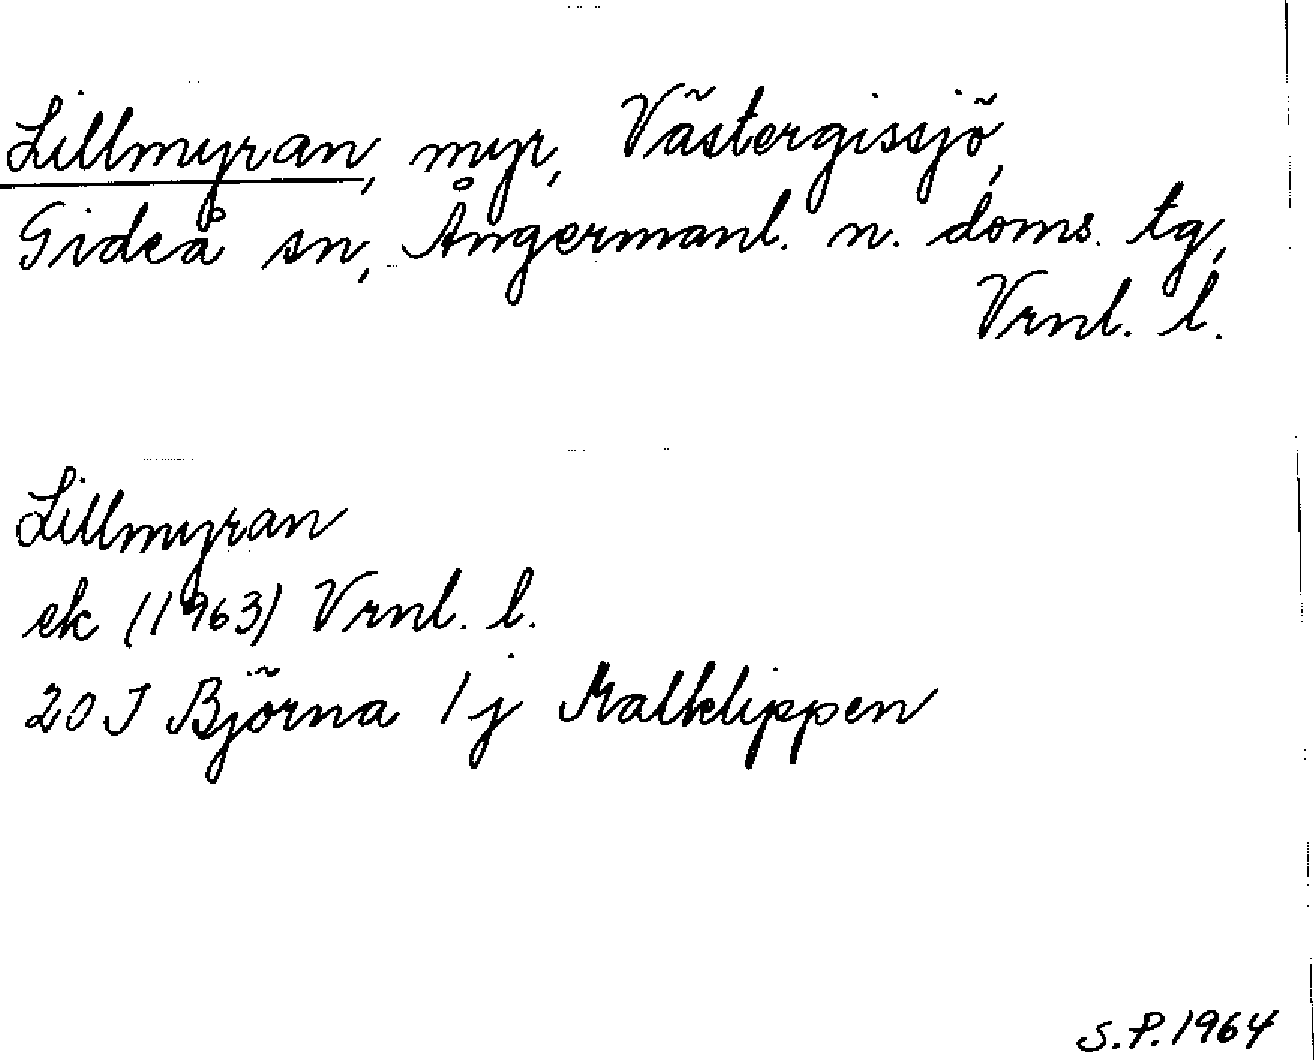 Lillmyran, myr, Västergissjö,
Gideå sn, Ångermanl. n. doms. tg,
Vrnl. l.
Lillmyran
ek (1963) Vrnl. l.
20 J Björna 1 j Kalklippen
S.P. 1964